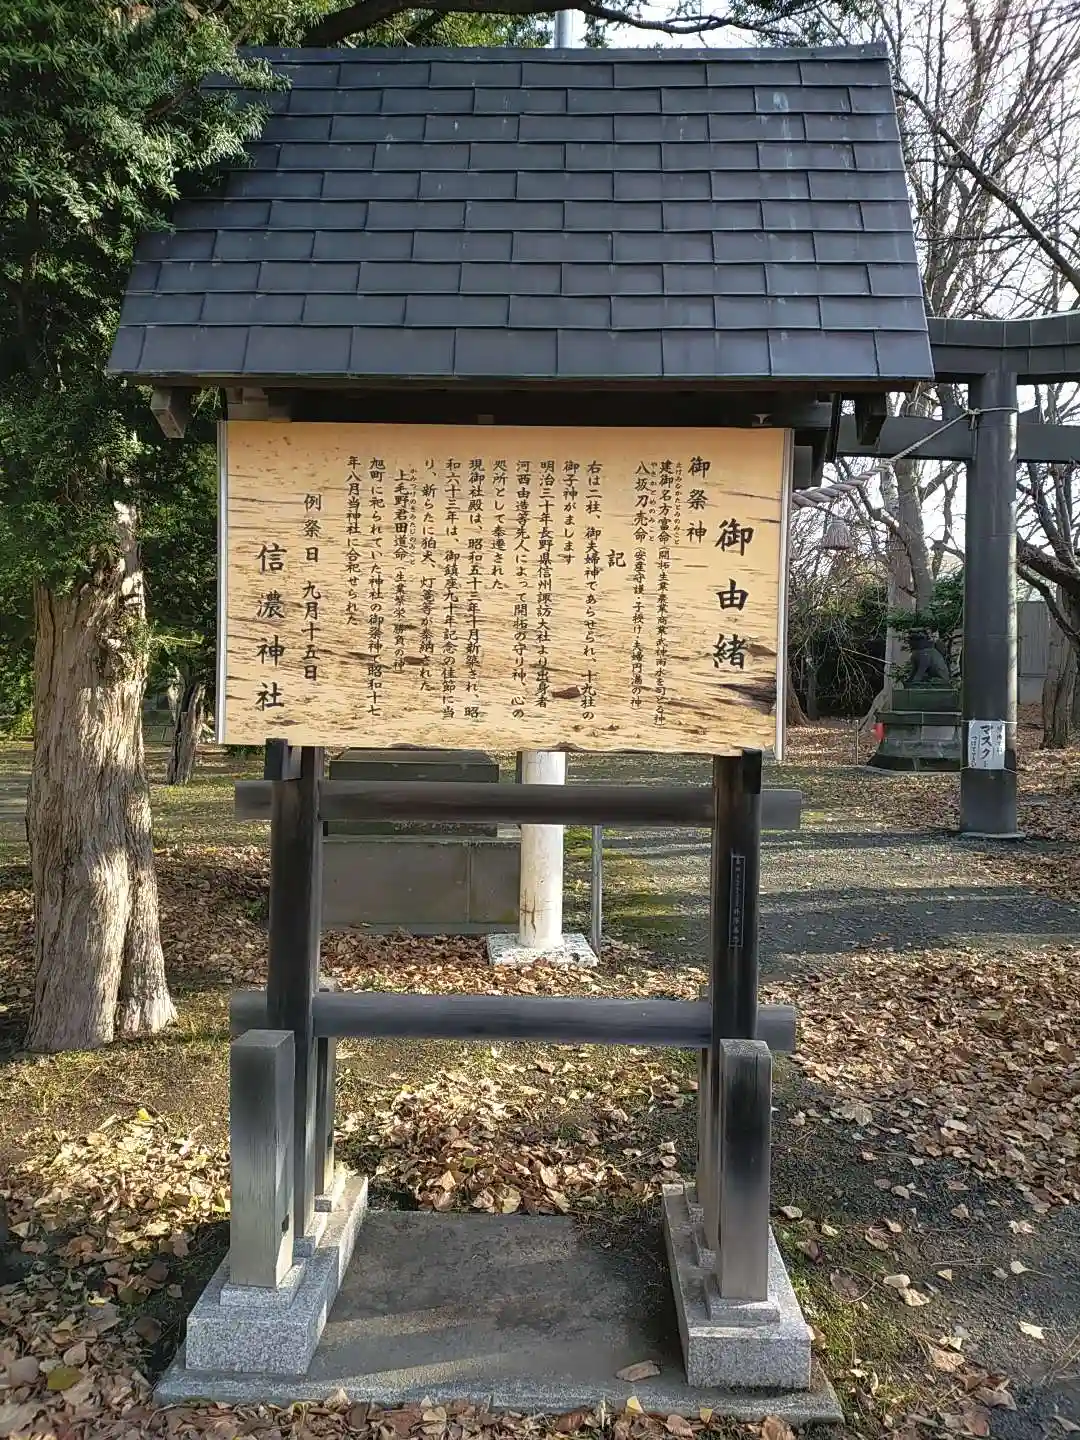 御由緒
御祭神
たけみなかとみのみこと
建御名方富命(開拓生業・農業商業・水神雨水を司どる神
やさかとめのみこと
八坂刀売命(安産守護・子授け・夫婦円満の神
記
右は二社、御夫婦神であらせられ、十九社の
御子神がまします
明治三十年長野県信州諏訪大社より出身者
河西由造等先人によって開拓の守り神、心の
処所として奉遷された
現御社殿は、昭和五十三年十月新築され、昭
和六十三年は、御鎮座九十年記念の佳節に当
り、新らたに狛犬、灯篭等が奉納された
上毛野君田道命(生業・学業・勝負の神
旭町に祀られていた神社の御祭神で昭和十七
年八月当神社に合祀せられた
例祭日 九月十五日
信濃神社
マスク